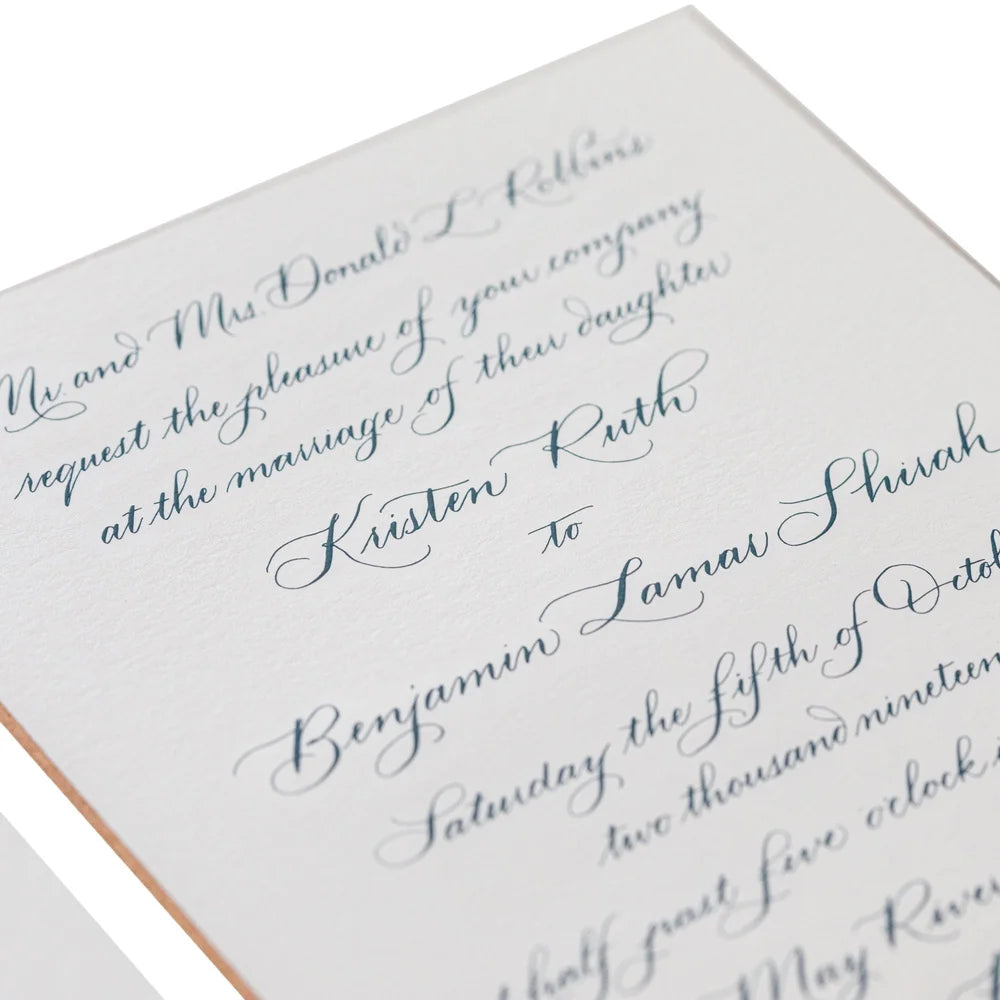 Mr. and Mrs. Donald L. Robbins
request the pleasure of your company
at the marriage of their daughter
Kristen Ruth
to
Benjamin Lamar Shirah
Saturday the fifth of Octob
two thousand nineteen
half past five o'clock i
May River